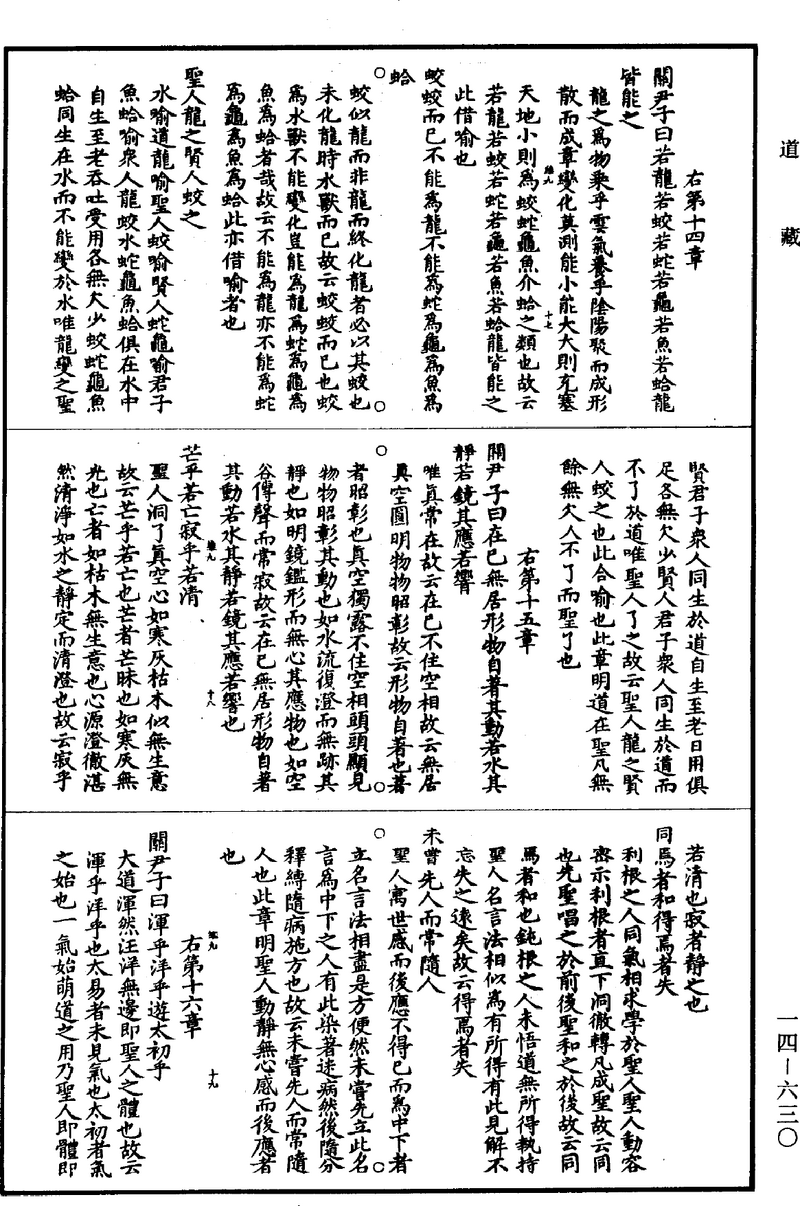 道藏
右第十四章
關尹子曰若龍若蛟若蛇若龜若魚若蛤龍
皆能之
龍之爲物乘乎雲氣養乎陰陽聚而成形
散而成章變化莫測能小能大大則充塞
天地小則爲蛟蛇龜魚介蛤之類也故云
若龍若蛟若蛇若龜若魚若蛤龍皆能之
此借喻也
蛟蛟而已不能爲龍不能爲蛇爲龜爲魚爲
蛤
蛟似龍而非龍而終化龍者必以其蛟也
未化龍時水獸而已故云蛟蛟而已也蛟
爲水獸不能變化豈能爲龍爲蛇爲龜爲
魚爲蛤者哉故云不能爲龍亦不能爲蛇
爲龜爲魚爲蛤此亦借喻者也
聖人龍之賢人蛟之
水喻道龍喻聖人蛟喻賢人蛇龜喻君子
魚蛤喻衆人龍蛟水蛇龜魚蛤俱在水中
自生至老吞吐受用各無欠少蛟蛇龜魚
蛤同生在水而不能變於水唯龍變之聖
賢君子衆人同生於道自生至老日用俱
足各無欠少賢人君子衆人同生於道而
不了於道唯聖人了之故云聖人龍之賢
人蛟之也此合喻也此章明道在聖凡無
餘無欠人不了而聖了也
右第十五章
關尹子曰在己無居形物自著其動若水其
靜若鏡其應若響
唯真常在故云在己不住空相故云無居
真空圓明物物昭彰故云形物自著也著
者昭彰也真空獨露不住空相頭頭顯見
物物昭彰其動也如水流復澄而無跡其
靜也如明鏡鑑形而無心其應物也如空
谷傳聲而常寂故云在己無居形物自著
其動若水其靜若鏡其應若響也
芒乎若亡寂乎若清
聖人洞了真空心如寒灰枯木似無生意
故云芒乎若亡也芒者芒昧也如寒灰無
光也亡者如枯木無生意也心源澄徹湛
然清淨如水之靜定而清澄也故云寂乎
若清也寂者靜之也
同焉者和得焉者失
利根之人同氣相求學於聖人聖人動容
密示利根者直下洞徹轉凡成聖故云同
也先聖唱之於前後聖和之於後故云同
焉者和也鈍根之人未悟道無所得執持
聖人名言法相似爲有所得有此見解不
忘失之遠矣故云得焉者失
未嘗先人而常隨人
聖人寓世感而後應不得已而爲中下者
立名言法相盡是方便然未嘗先立此名
言爲中下之人有此染著迷病然後隨分
釋縛隨病施方也故云未嘗先人而常隨
人也此章明聖人動靜無心感而後應者
也
右第十六章
關尹子曰渾乎洋乎遊太初乎
大道渾然汪洋無邊即聖人之體也故云
渾乎洋乎也太易者未見氣也太初者氣
之始也一氣始萌道之用乃聖人即體即
一四—六三〇